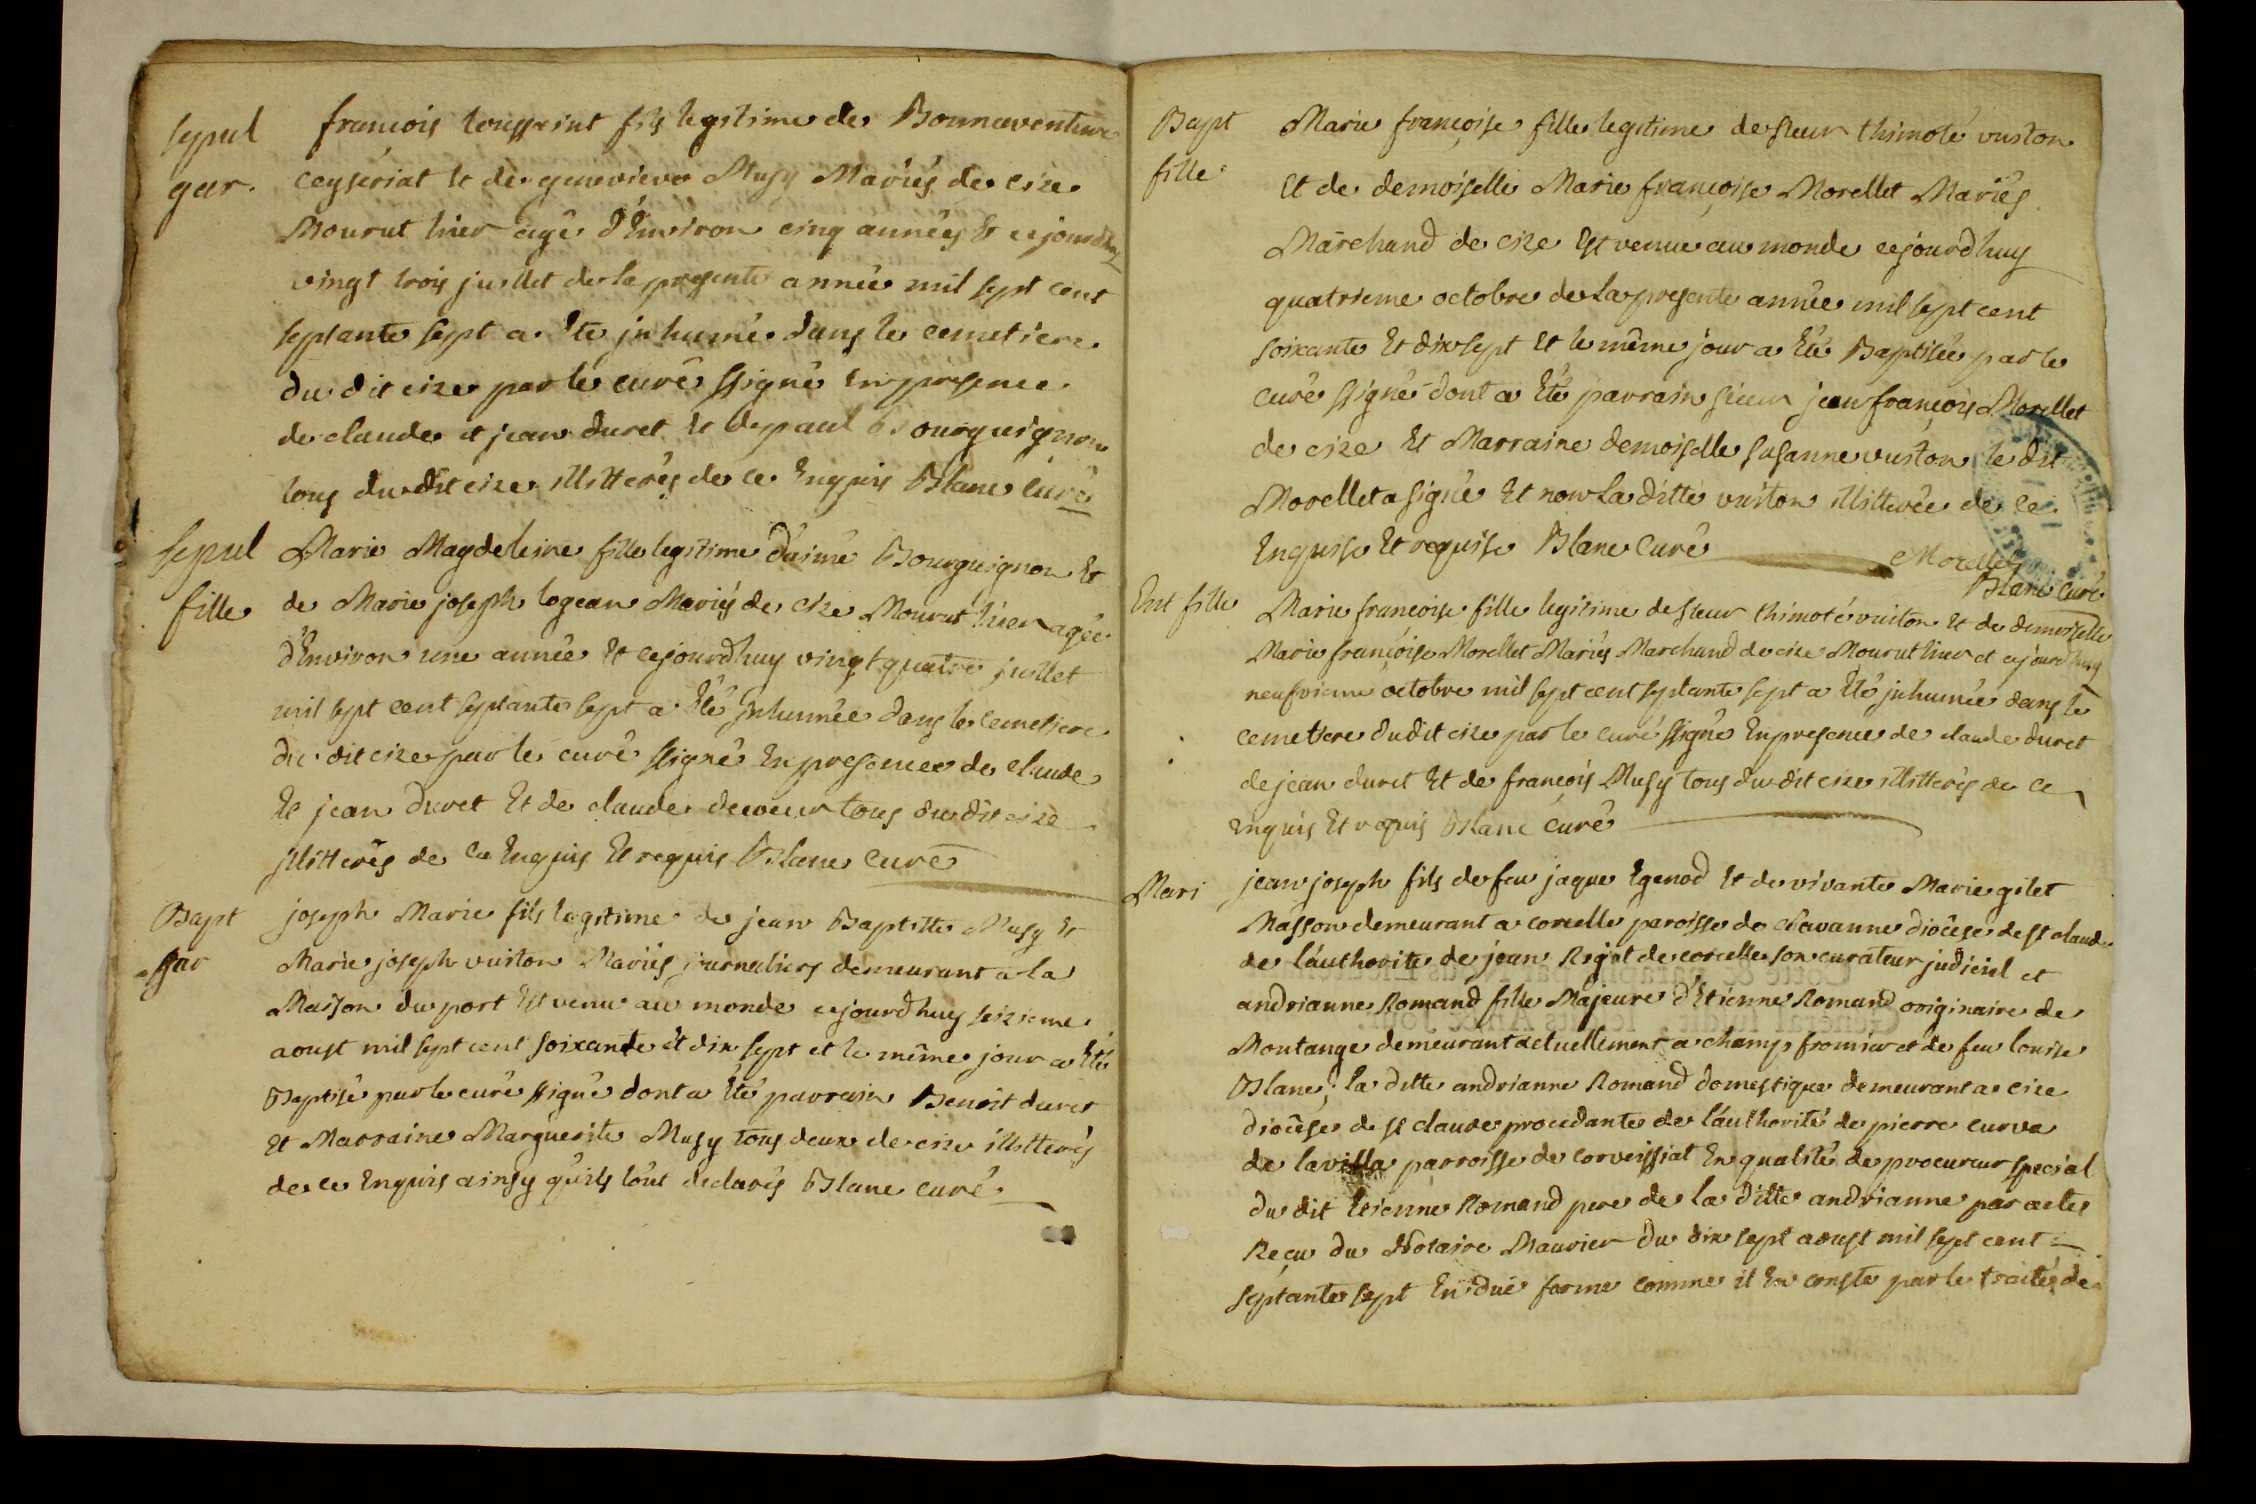 sepul
gar.
françois toussaint fils legitime de Bonnaventure
ceyseriat Et de genevieve Musy Mariés de cize
Mourut hier agé d'Environ cinq années Et cejourdhuy
vingt trois juillet de la presente année mil sept cent
septante sept a Eté jnhumé dans le cemetiere
du dit cize par le curé ssigné En presence
de claude et jean duret Et de paul Bourguignon
tous du dit cize illitterés de ce Enquis Blanc curé
sepul
fille
Marie Magdeleine fille legitime d'aimé Bourguignon Et
de Marie joseph logean Mariés de cize Mourut hier agée
d'Environ une année Et cejourdhuy vingt quatre juillet
mil sept cent septante sept a Eté jnhumée dans le cemetiere
du dit cize par le curé ssigné En presence de claude
Et jean duret Et de claude tous du dit cize
jllitterés de ce Enquis Et requis Blanc curé
Bapt
gar
joseph Marie fils legitime de jean Baptitte Musy Et
Marie joseph vuiton Mariés journaliers demeurant a la
Maison du port Est venu au monde cejourdhuy seizieme
aoust mil sept cent soixante et dix sept et le même jour a Eté
Baptisé par le curé ssigné dont a Eté parrain Benoit duret
Et Marraine Marguerite Musy tous deux de cize illitterés
de ce Enquis ainsy qu'ils l'ont declarés Blanc curé
Bapt
fille
Marie françoise fille legitime de sieur thimoté vuiton
Et de demoiselle Marie françoise Morellet Mariés
Marchand de cize Est venue au monde cejourdhuy
quatrieme octobre de la presente année mil sept cent
soixante Et dix sept Et le même jour a Eté Baptisée par le
curé ssigné dont a Eté parrain sieur jean françois Morellet
de cize Et Marraine demoiselle susanne vuiton le dit
Morellet a signé Et non la ditte vuiton illitterée de ce
Enquise Et requise Blanc curé
Morellet
Blanc curé
Ent fille
Marie françoise fille legitime de sieur thimoté vuiton Et de demoiselle
Marie françoise Morellet Mariés Marchand de cize Mourut hier et cejourdhuy
neufvieme octobre mil sept cent septante sept a Eté jnhumée dans le
cemetiere du dit cize par le curé ssigné En presence de claude duret
de jean duret Et de françois Musy tous du dit cize illitterés de ce
enquis Et requis Blanc curé
Mari
jean joseph fils de feu jaque Egenod Et de vivante Marie gilet
Masson demeurant a corcelle paroisse de chavanne diocese de st claude
de l'authorité de jean de corcelle son curateur judiciel et
andrianne Romand fille Majeure d'Etienne Romand originaire de
Montange demeurant actuellement a champ fromier et de feu louise
Blanc; la ditte andrianne Romand domestique demeurant a cize
diocese de st claude procedante de l'authorité de pierre curva
de la villa parroisse de corveissiat En qualité de procureur special
du dit Etienne Romand pere de la ditte andrianne par acte
Reçu du Notaire Maurier du dix sept aoust mil sept cent
septante sept En duë forme comme il En conste par le traité de